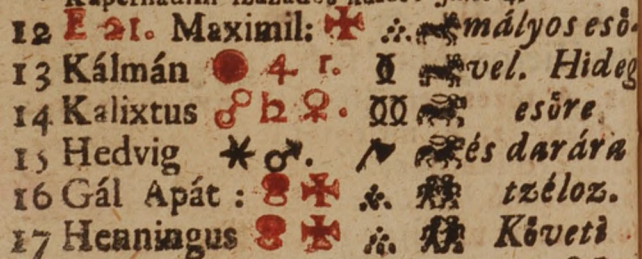 12 E 21. Maximil: ✠ mályos esö-
13 Kálmán ● 4 r. vel. Hideg
14 Kalixtus ☍ ♄ ♀. esöre
15 Hedvig ⚹ ♂. és darára
16 Gál Apát : ✠ tzéloz.
17 Henningus ✠ Követi